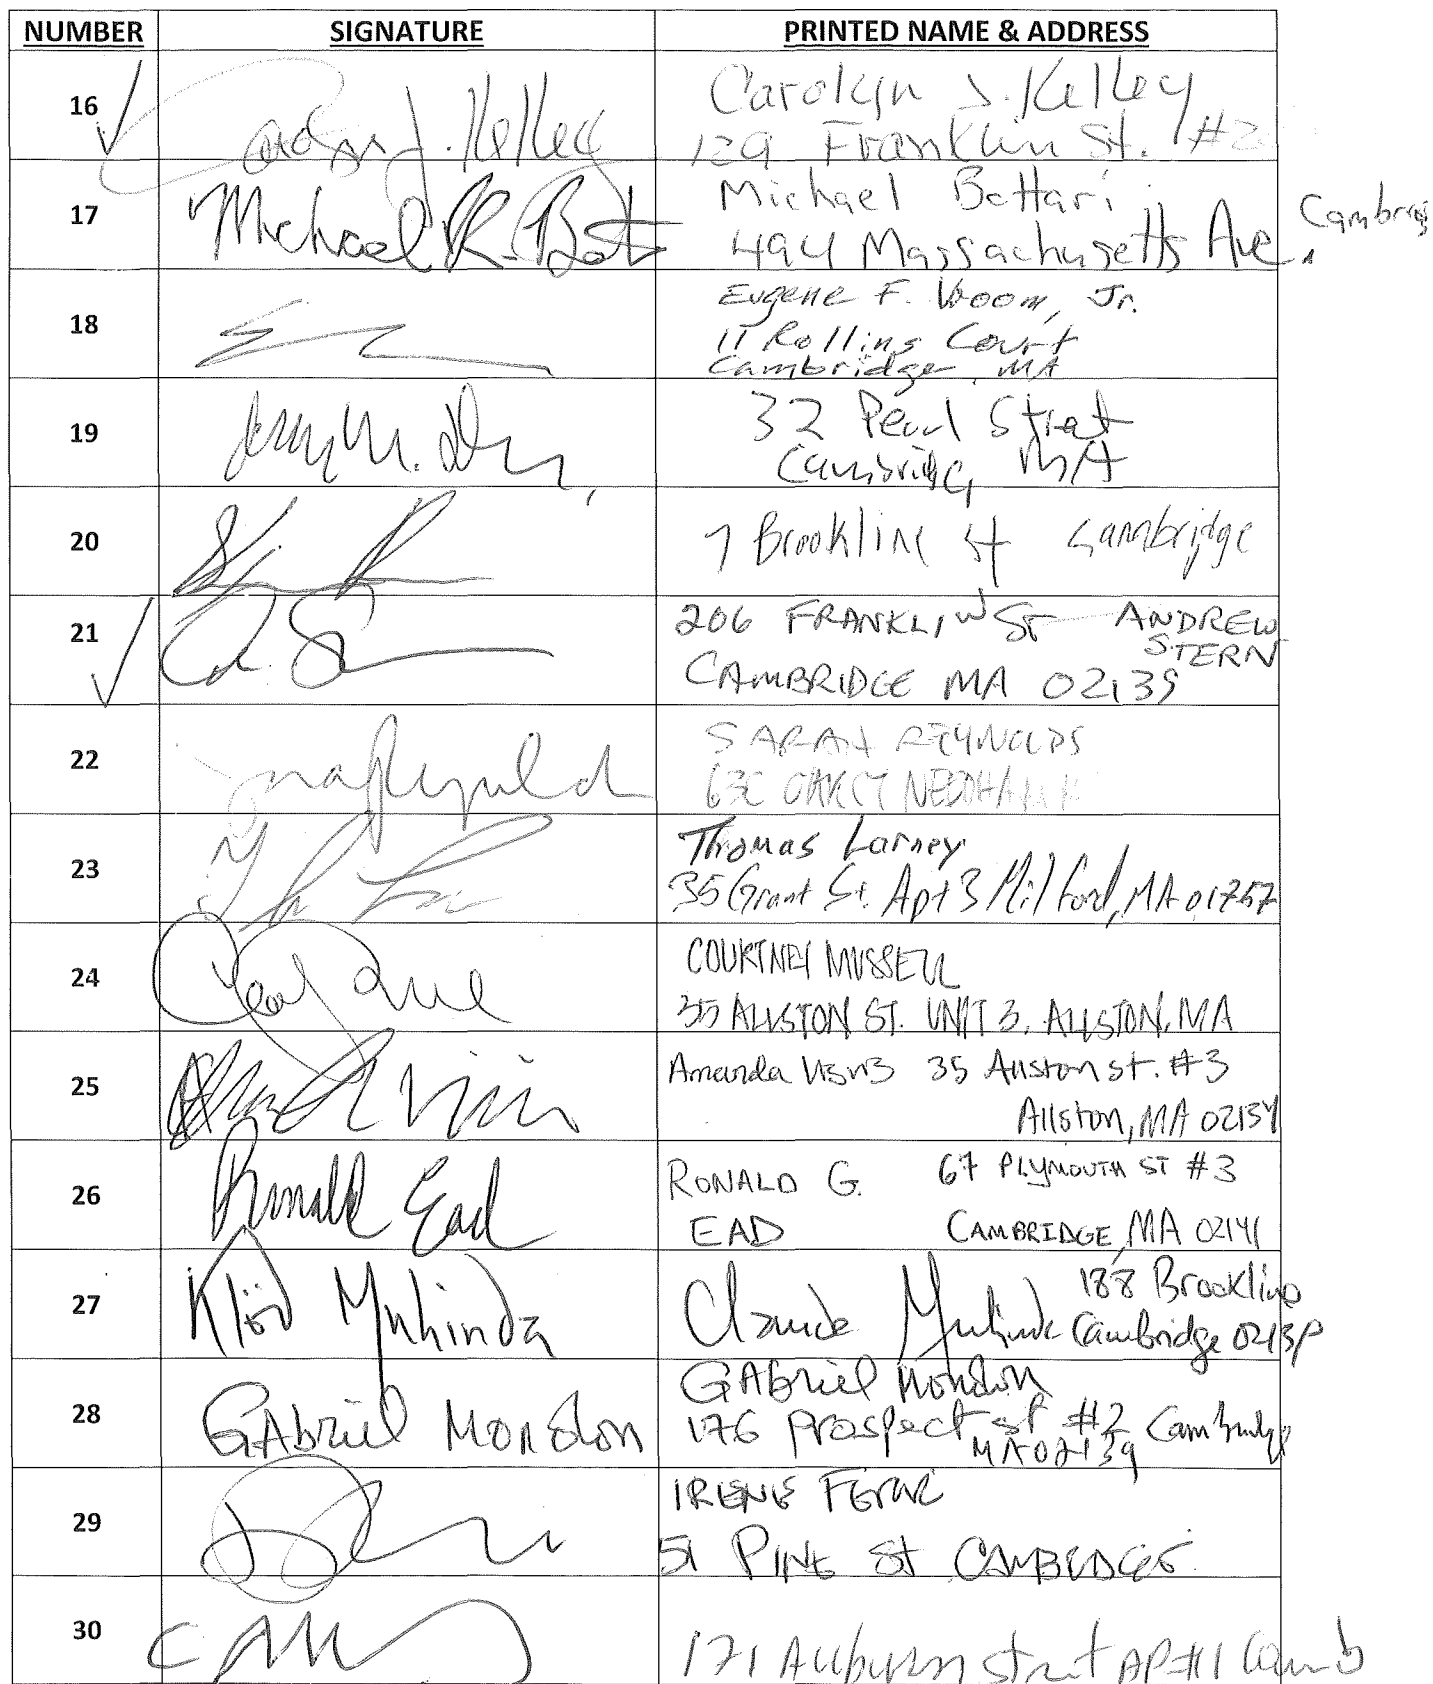 NUMBER SIGNATURE PRINTED NAME & ADDRESS
16 J. Kelley Carolyn J. Kelley
129 Franklin St. #2
17 Michael R. Michael Bottari
494 Massachusetts Ave, Cambridge
18 Eugene F. Vroom, Jr.
11 Rollins Court
Cambridge, MA
19 32 Pearl Street
Cambridge MA
20 7 Brookline St Cambridge
21 206 FRANKLIN ST ANDREW
STERN
CAMBRIDGE MA 02139
22 SARAH REYNOLDS
NEEDHAM
23 Thomas Larney
35 Grant St. Apt 3 Milford, MA 01757
24 COURTNEY MUSSELL
35 ALLSTON ST. UNIT 3, ALLSTON, MA
25 Amanda 35 Allston st. #3
Allston, MA 02134
26 Ronald Ead RONALD G. 67 PLYMOUTH ST #3
EAD CAMBRIDGE, MA 02141
27 Klöd Muhinda Claude Muhinda 188 Brookline
Cambridge 0213
28 GAbriel Mondon GAbriel Mondon
176 Prospect st #2 Cambridge
MA 02139
29 IRENE
51 PINE St
30 171 Auburn Street AP#1 Camb